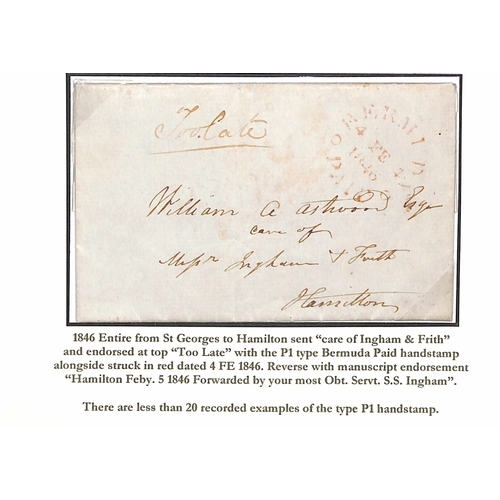 Too Late
BERMUDA
4 FE 4
1846
PAID
William A Astwood Esqr
care of
Messrs Ingham & Frith
Hamilton
1846 Entire from St Georges to Hamilton sent “care of Ingham & Frith”
and endorsed at top “Too Late” with the P1 type Bermuda Paid handstamp
alongside struck in red dated 4 FE 1846. Reverse with manuscript endorsement
“Hamilton Feby. 5 1846 Forwarded by your most Obt. Servt. S.S. Ingham”.
There are less than 20 recorded examples of the type P1 handstamp.